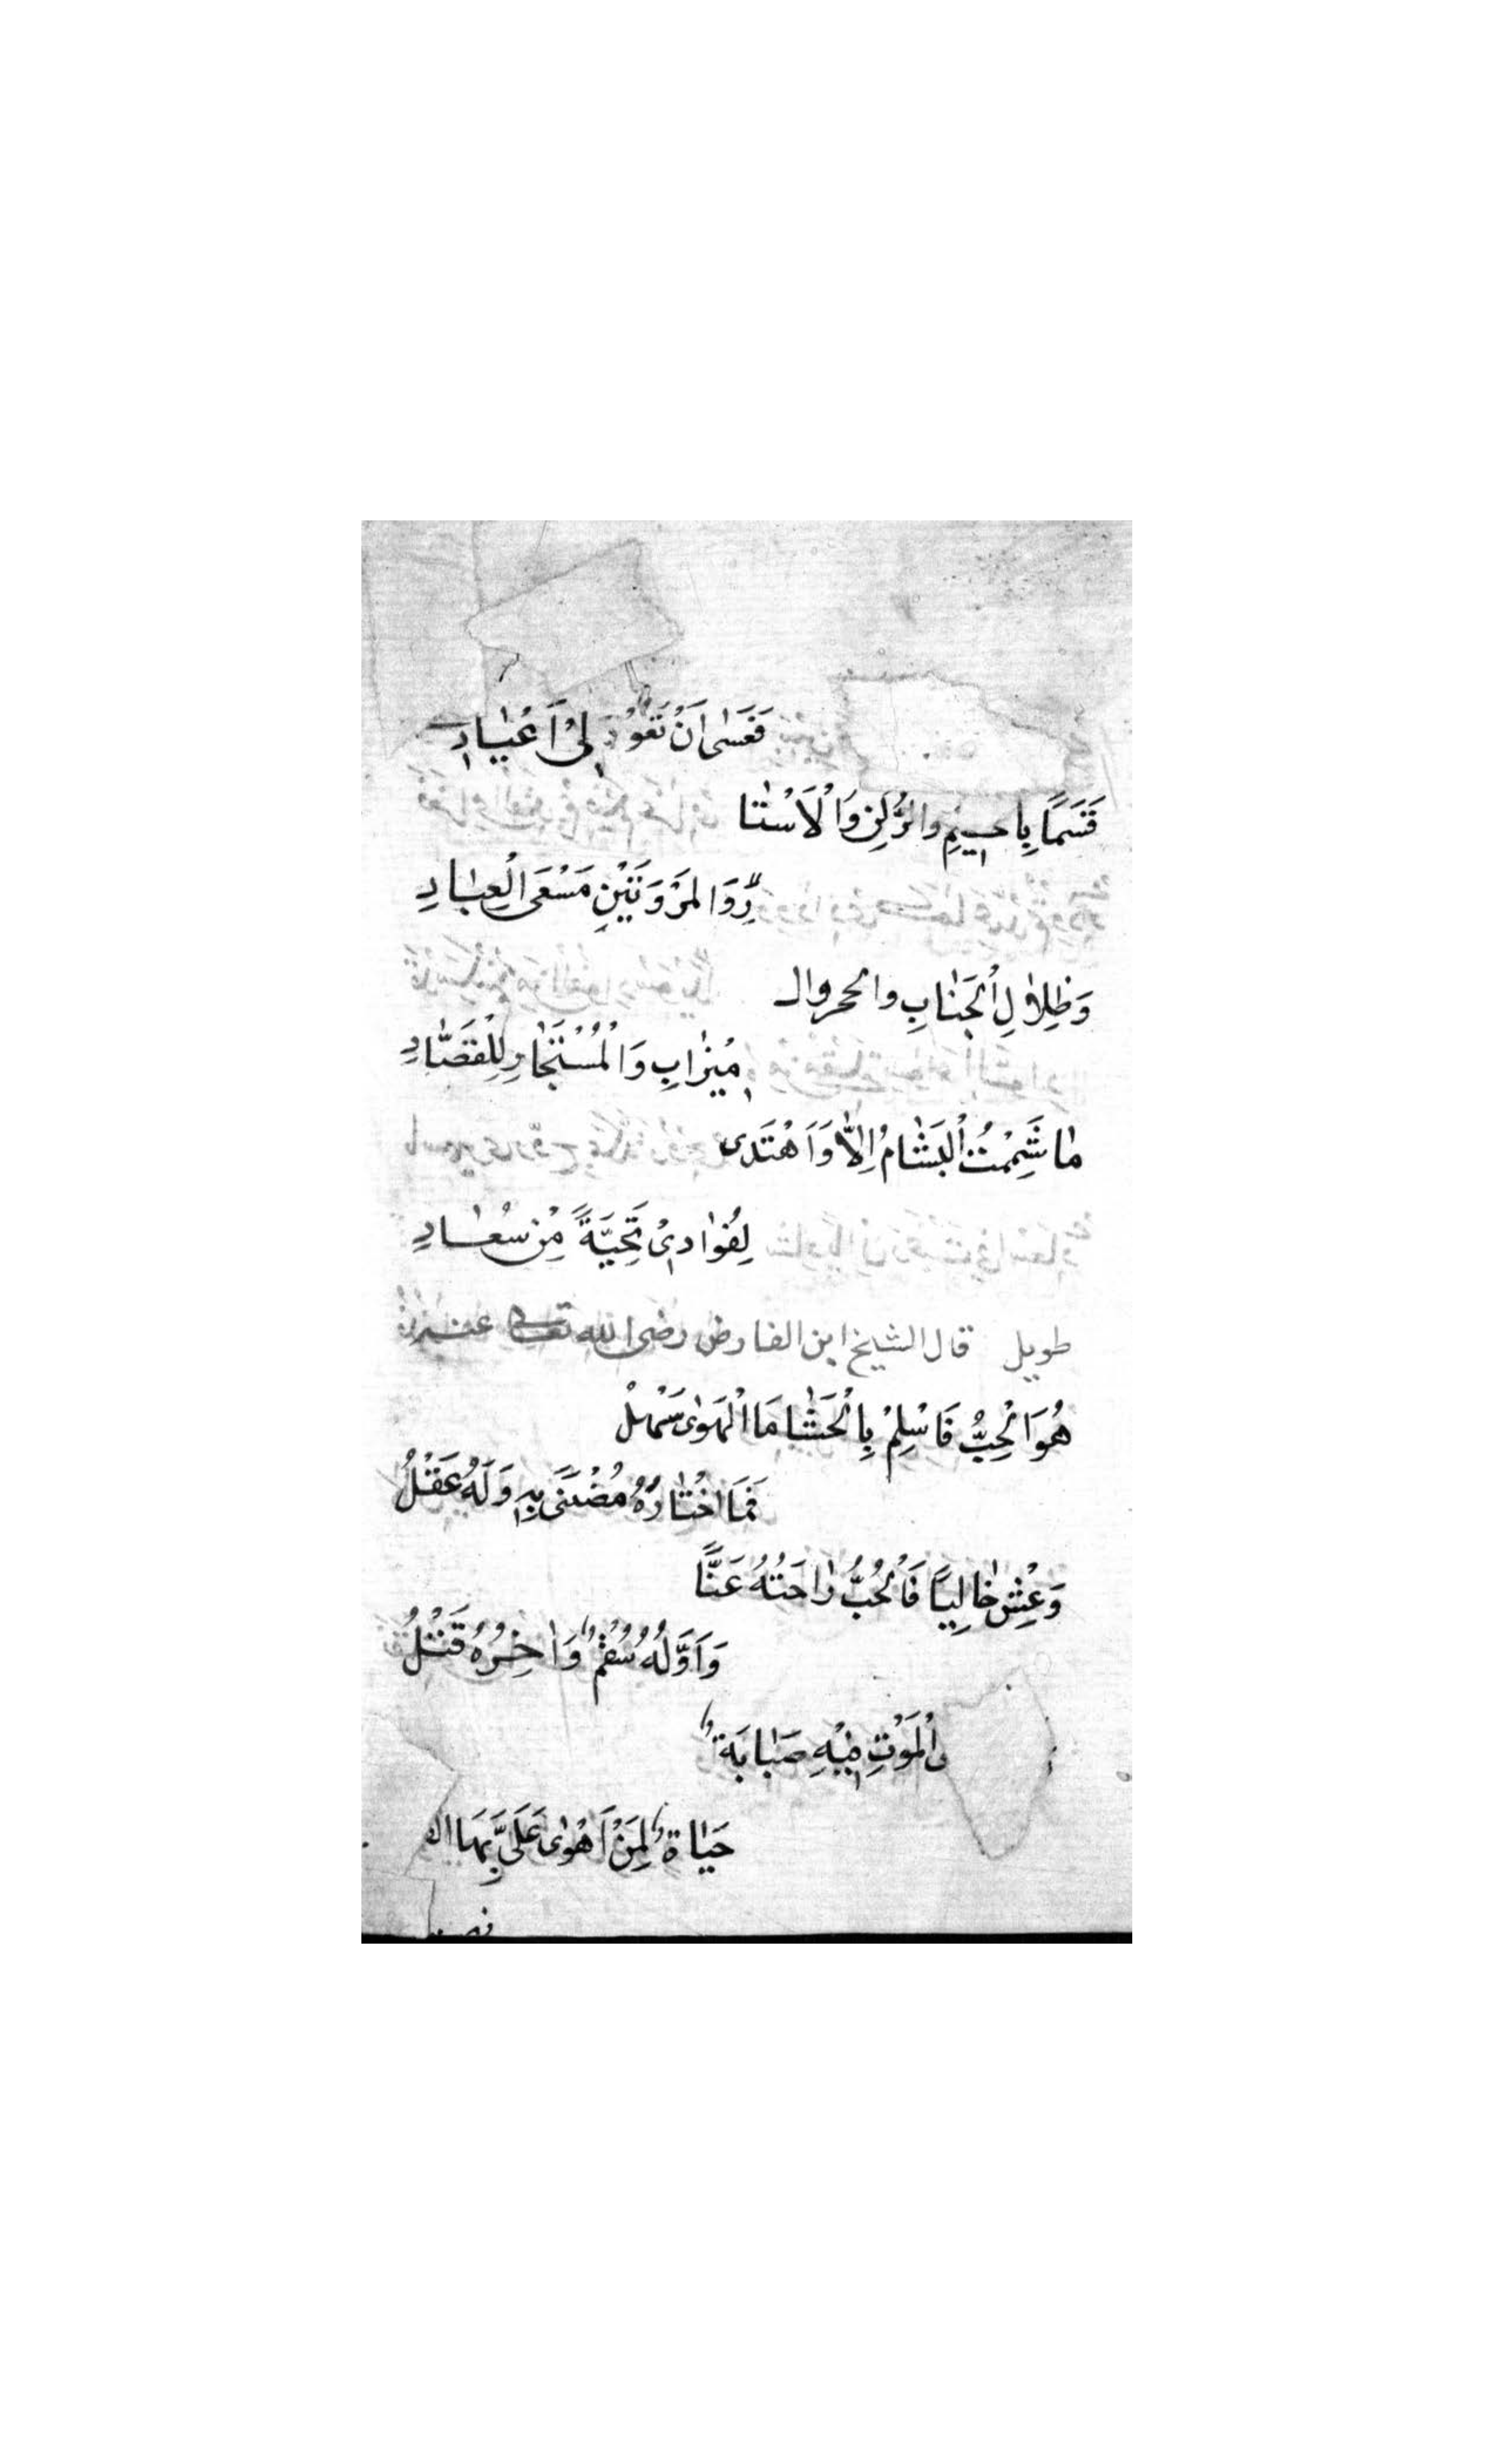 فَعَسٰى اَنْ تَعُوْدَ لِيْ اَعْيٰادِي
قَسَمًا بِالحطيمِ والرُّكنِ وَالْاَسْتٰا
رِوَالمَرْوَتَيْنِ مَسْعَى الْعِبٰادِ
وَظِلاٰلِ الْجَنٰابِ والحجر وال
مِيْزٰابِ وَالْمُسْتَجٰارِ لِلْقُصّٰادِ
مٰا شَمِمْتُ الْبَشٰامَ اِلاّٰ وَاَهْتَدى
لِفُوٰادِيْ تَحِيَّةً مِنْ سُعٰادِ
طويل قال الشيخ ابن الفارض رضى الله تعالى عنه
هُوَ الْحِبُّ فَاسْلِمْ بِالْحَشٰا مَا الْهَوٰى سَهْلْ
فَمَا اخْتٰارَهُ مُضْنًى بِهِ وَلَهُ عَقْلُ
وَعِشْ خٰالِيًا فَالْحُبُّ رٰاحَتُهُ عَنًّا
وَاَوَّلُهُ سُقْمٌ وَاٰخِرُهُ قَتْلُ
الْمَوْتِ فِيْهِ صَبٰابَةٌ
حَيٰاةٌ لِمَنْ اَهْوٰى عَلَيَّ بِهَا